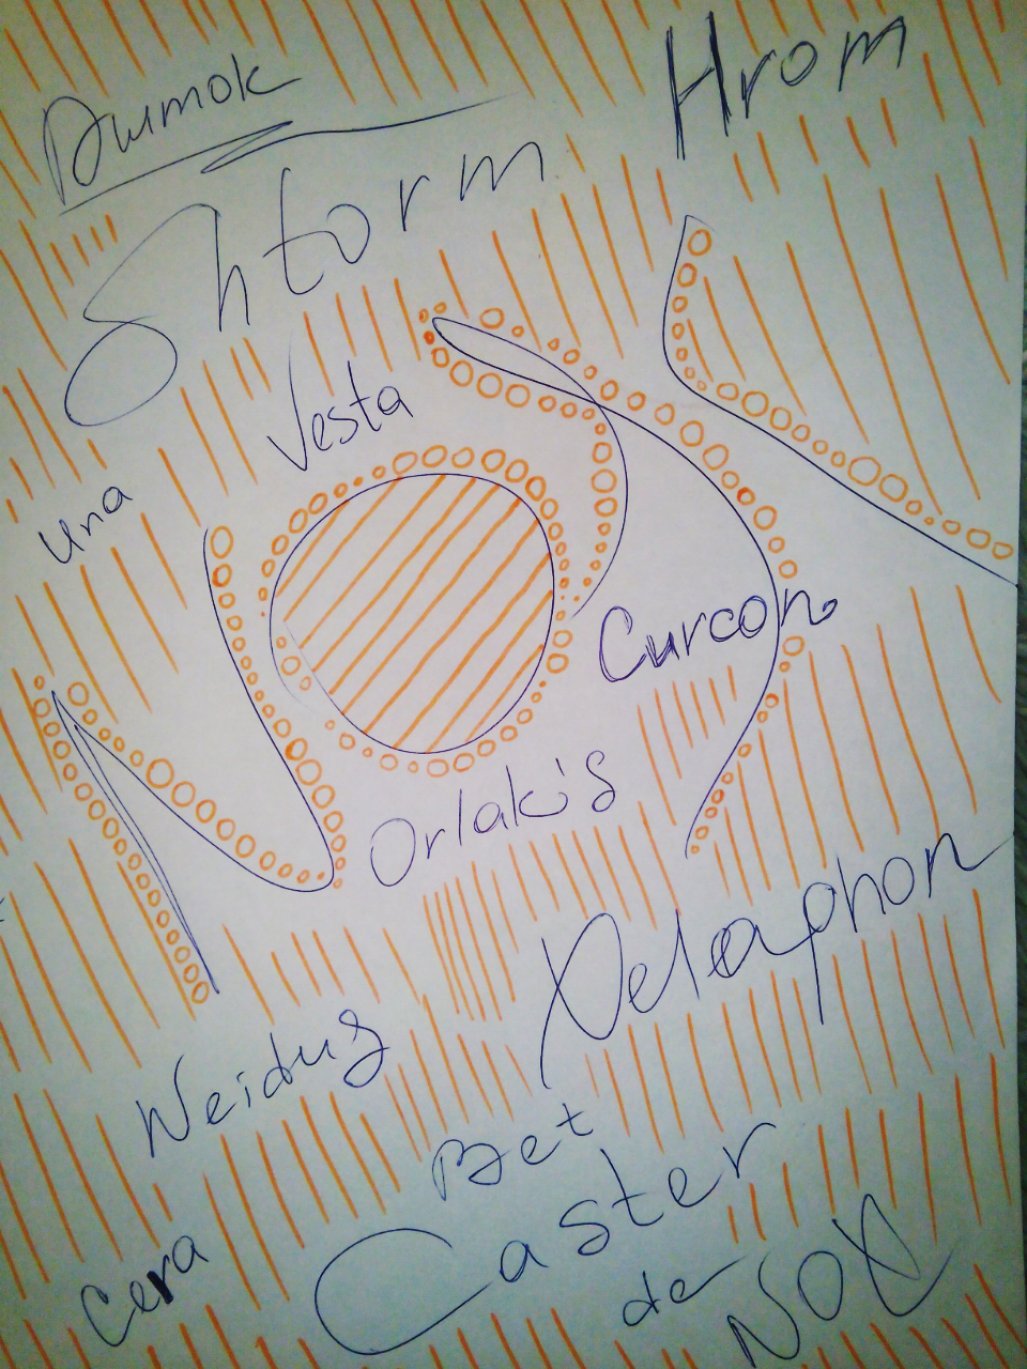 Дымок
Hrom
Shtorm
Vesta
Una
Curcon
Orlakis
Delaphon
Weidus
Bet
Caster
Cera
de
NOX